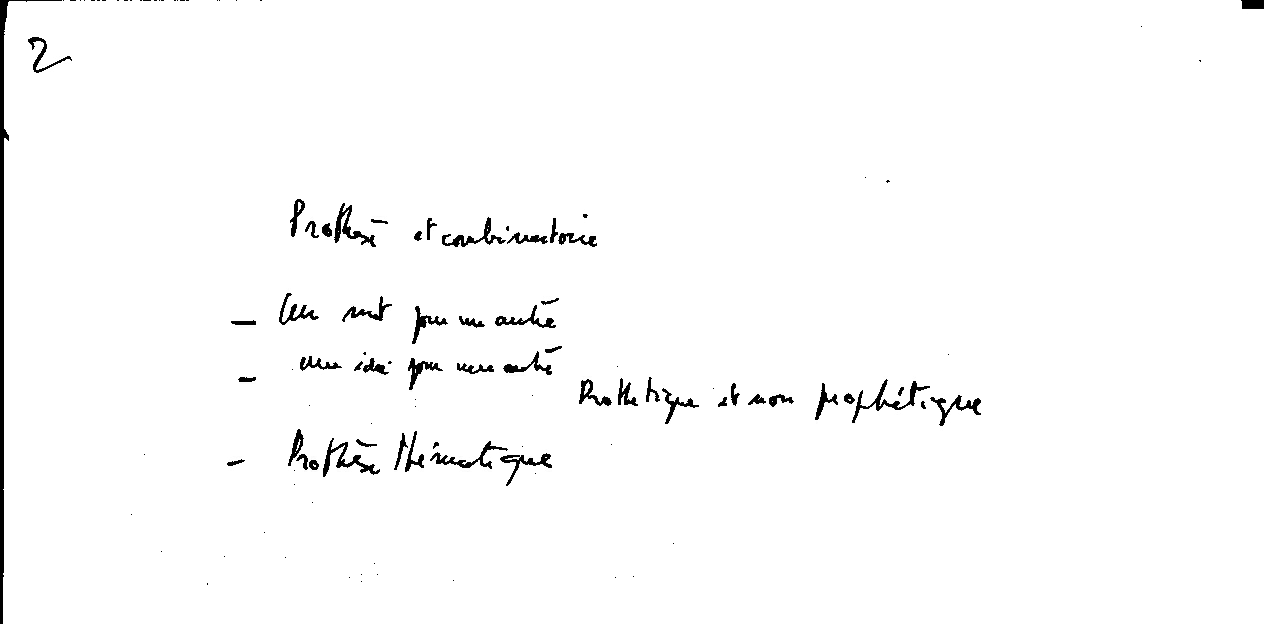 2
Prothèse et combinatoire
— Un mot pour un autre
— une idée pour une autre
Prothetique et non prophétique
— Prothèse thématique